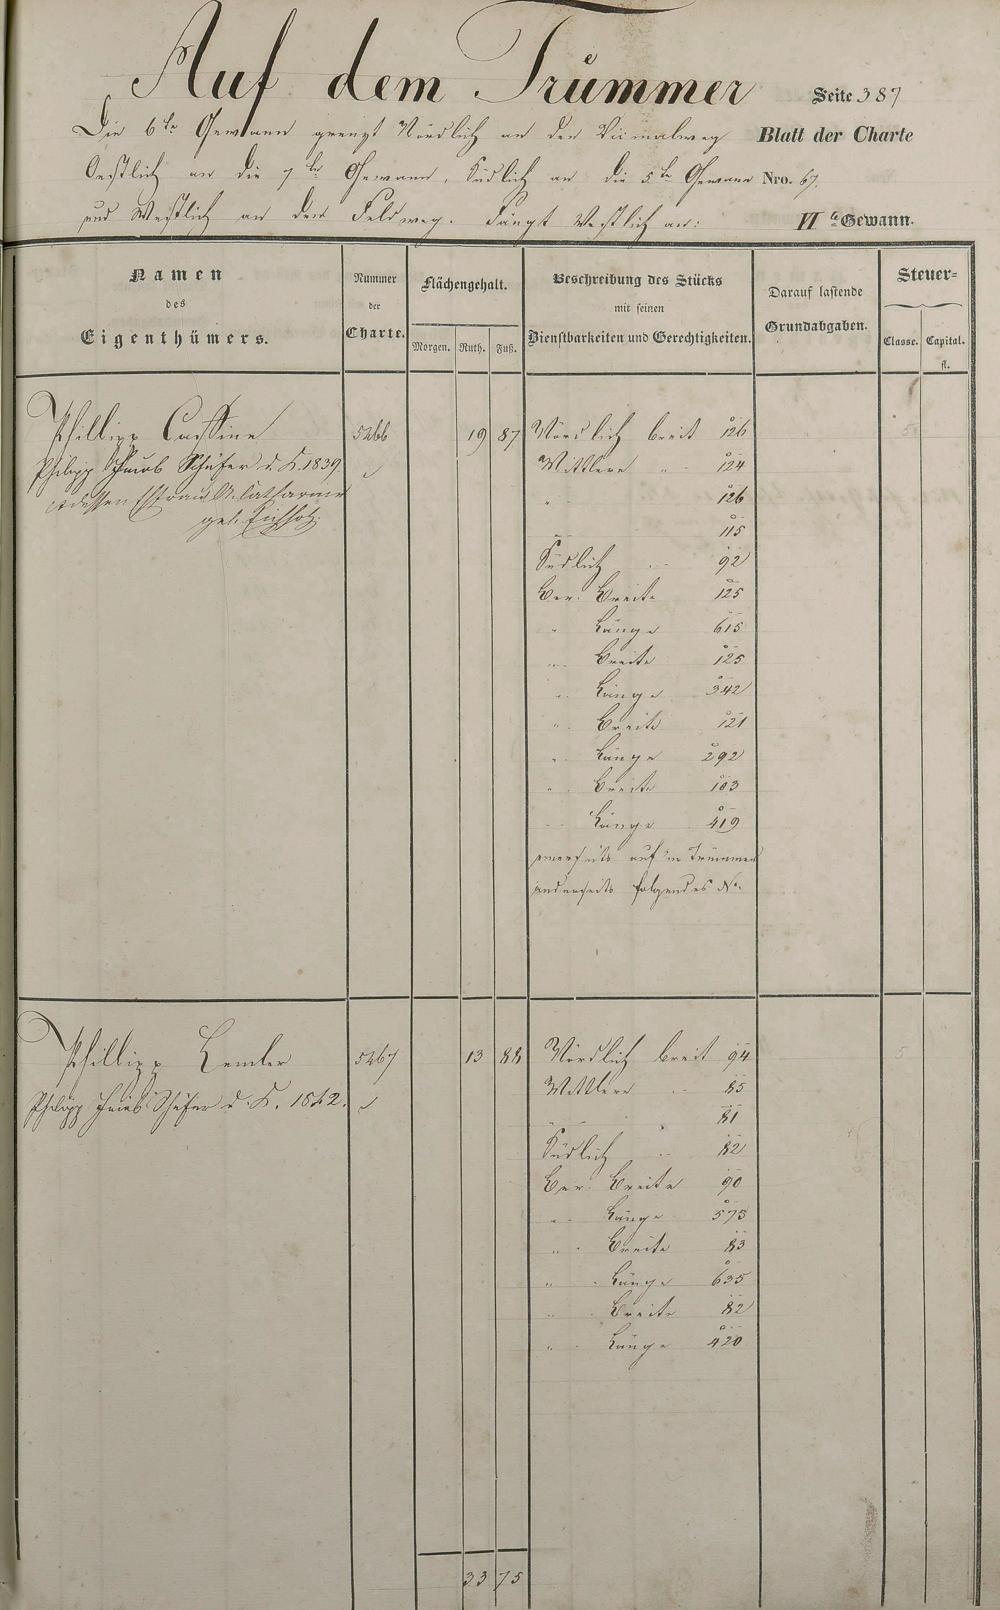 Auf dem Trümmer
Seite 387
Die 6te Gewann grenzt Nördlich an den
Blatt der Charte
Oestlich an die 7te Gewann, Südlich an die 5te Gewann
Nro. 67.
und Westlich an den Feldweg. Fängt Westlich an:
VIte Gewann.
Namen des Eigenthümers.
Nummer der Charte.
Flächengehalt.
Morgen. Ruth. Fuß.
Beschreibung des Stücks mit seinen Dienstbarkeiten und Gerechtigkeiten.
Darauf lastende Grundabgaben.
Steuer=
Classe. Capital. fl.
Phillipp Cassine 5266 19 87 Nördlich breit 126 5
Philipp Jacob Schäfer d. K. 1839 Mittlere " 124
dessen Ehefrau A. Catharine " 126
geb. Eichholz. " 115
Südlich " 92
Ber. Breite 125
" Länge 615
" Breite 125
" Länge 342
" Breite 121
" Länge 292
" Breite 103
" Länge 419
einerseits auf'm Trümmer
anderseits folgendes No.
Phillipp Lemler 5267 13 88 Nördlich breit 94 5
Philipp Jacob Schäfer d. K. 1842. Mittlere " 85
" " 81
Südlich " 82
Ber. Breite 90
" Länge 573
" Breite 83
" Länge 635
" Breite 82
" Länge 420
33 75